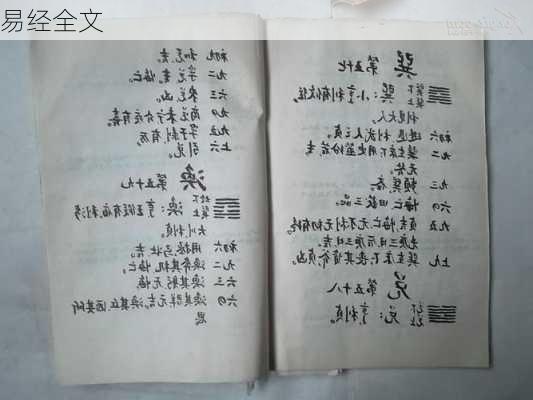 易经全文
巽
第五十七
巽下
巽上
巽：小亨，利有攸往，
利见大人。
初六 进退，利武人之贞。
九二 巽在床下，用史巫纷若，吉
无咎。
九三 频巽，吝。
六四 悔亡，田获三品。
九五 贞吉，悔亡，无不利，无初有终，
先庚三日，后庚三日，吉。
上九 巽在床下，丧其资斧，贞凶。
兑
第五十八
兑下
兑上
兑：亨，利贞。
初九 和兑，吉。
九二 孚兑，吉，悔亡。
六三 来兑，凶。
九四 商兑未宁，介疾有喜。
九五 孚于剥，有厉。
上六 引兑。
涣
第五十九
坎下
巽上
涣：亨，王假有庙，利涉
大川，利贞。
初六 用拯马壮，吉。
九二 涣奔其机，悔亡。
六三 涣其躬，无悔。
六四 涣其群，元吉。涣其丘，匪夷所
思